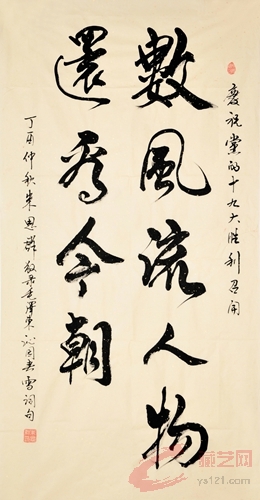 慶祝黨的十九大胜利召開
數風流人物
還看今朝
丁酉仲秋朱群敬录毛澤東沁园春雪詞句
藏艺网
ys121.com